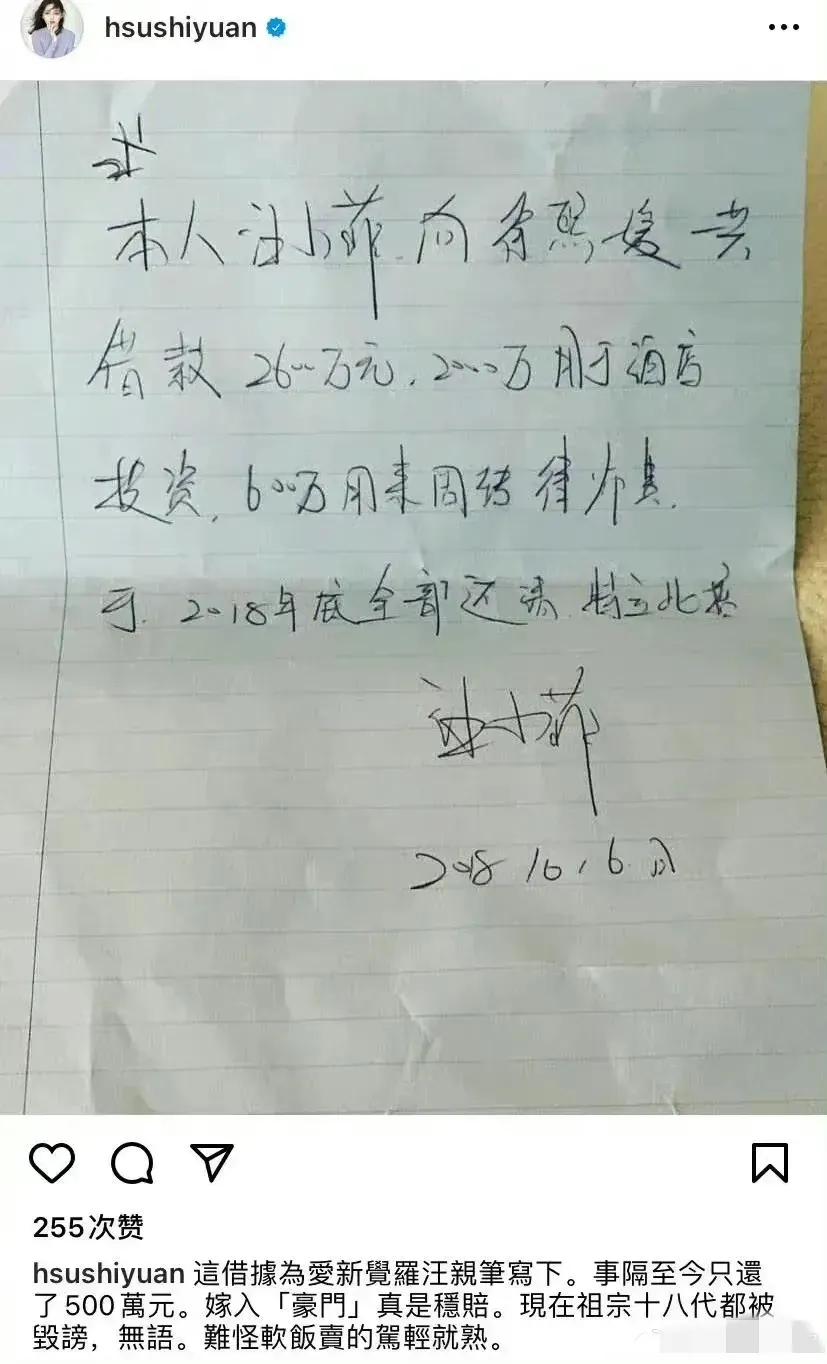 hsushiyuan
本人汪小菲向徐熙媛共
借款2600万元，2000万用于酒店
投资，600万用来周转律师费.
于.2018年底全部还清.特立此据
汪小菲
2018.10.6日
255次赞
hsushiyuan 這借據為愛新覺羅汪親筆寫下。事隔至今只還
了500萬元。嫁入「豪門」真是穩賠。現在祖宗十八代都被
毀謗，無語。難怪軟飯賣的駕輕就熟。